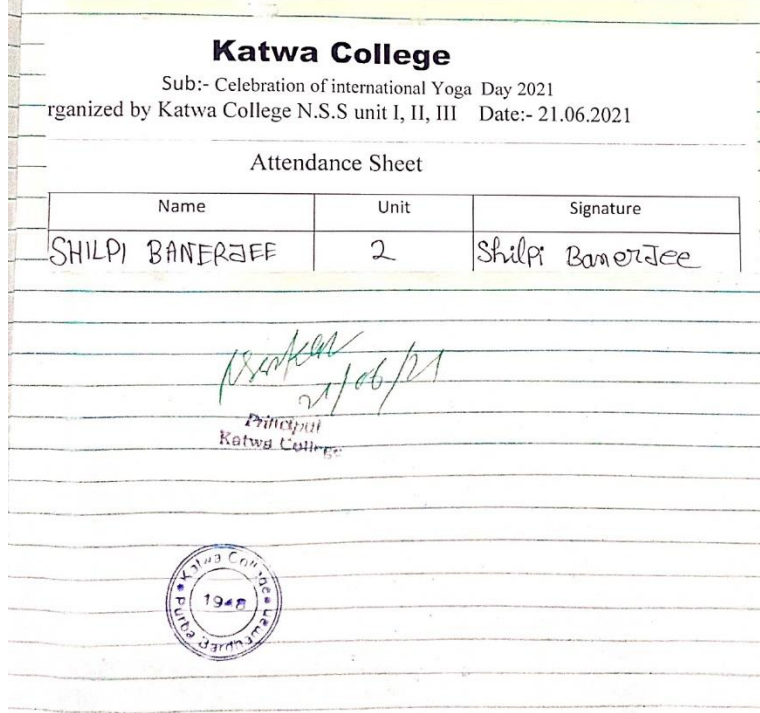 Katwa College
Sub:- Celebration of international Yoga Day 2021
rganized by Katwa College N.S.S unit I, II, III Date:- 21.06.2021
Attendance Sheet
Name Unit Signature
SHILPI BANERJEE 2 Shilpi BanerJee
21/06/21
Principal
Katwa College
Katwa College
1948
Purba Bardhaman